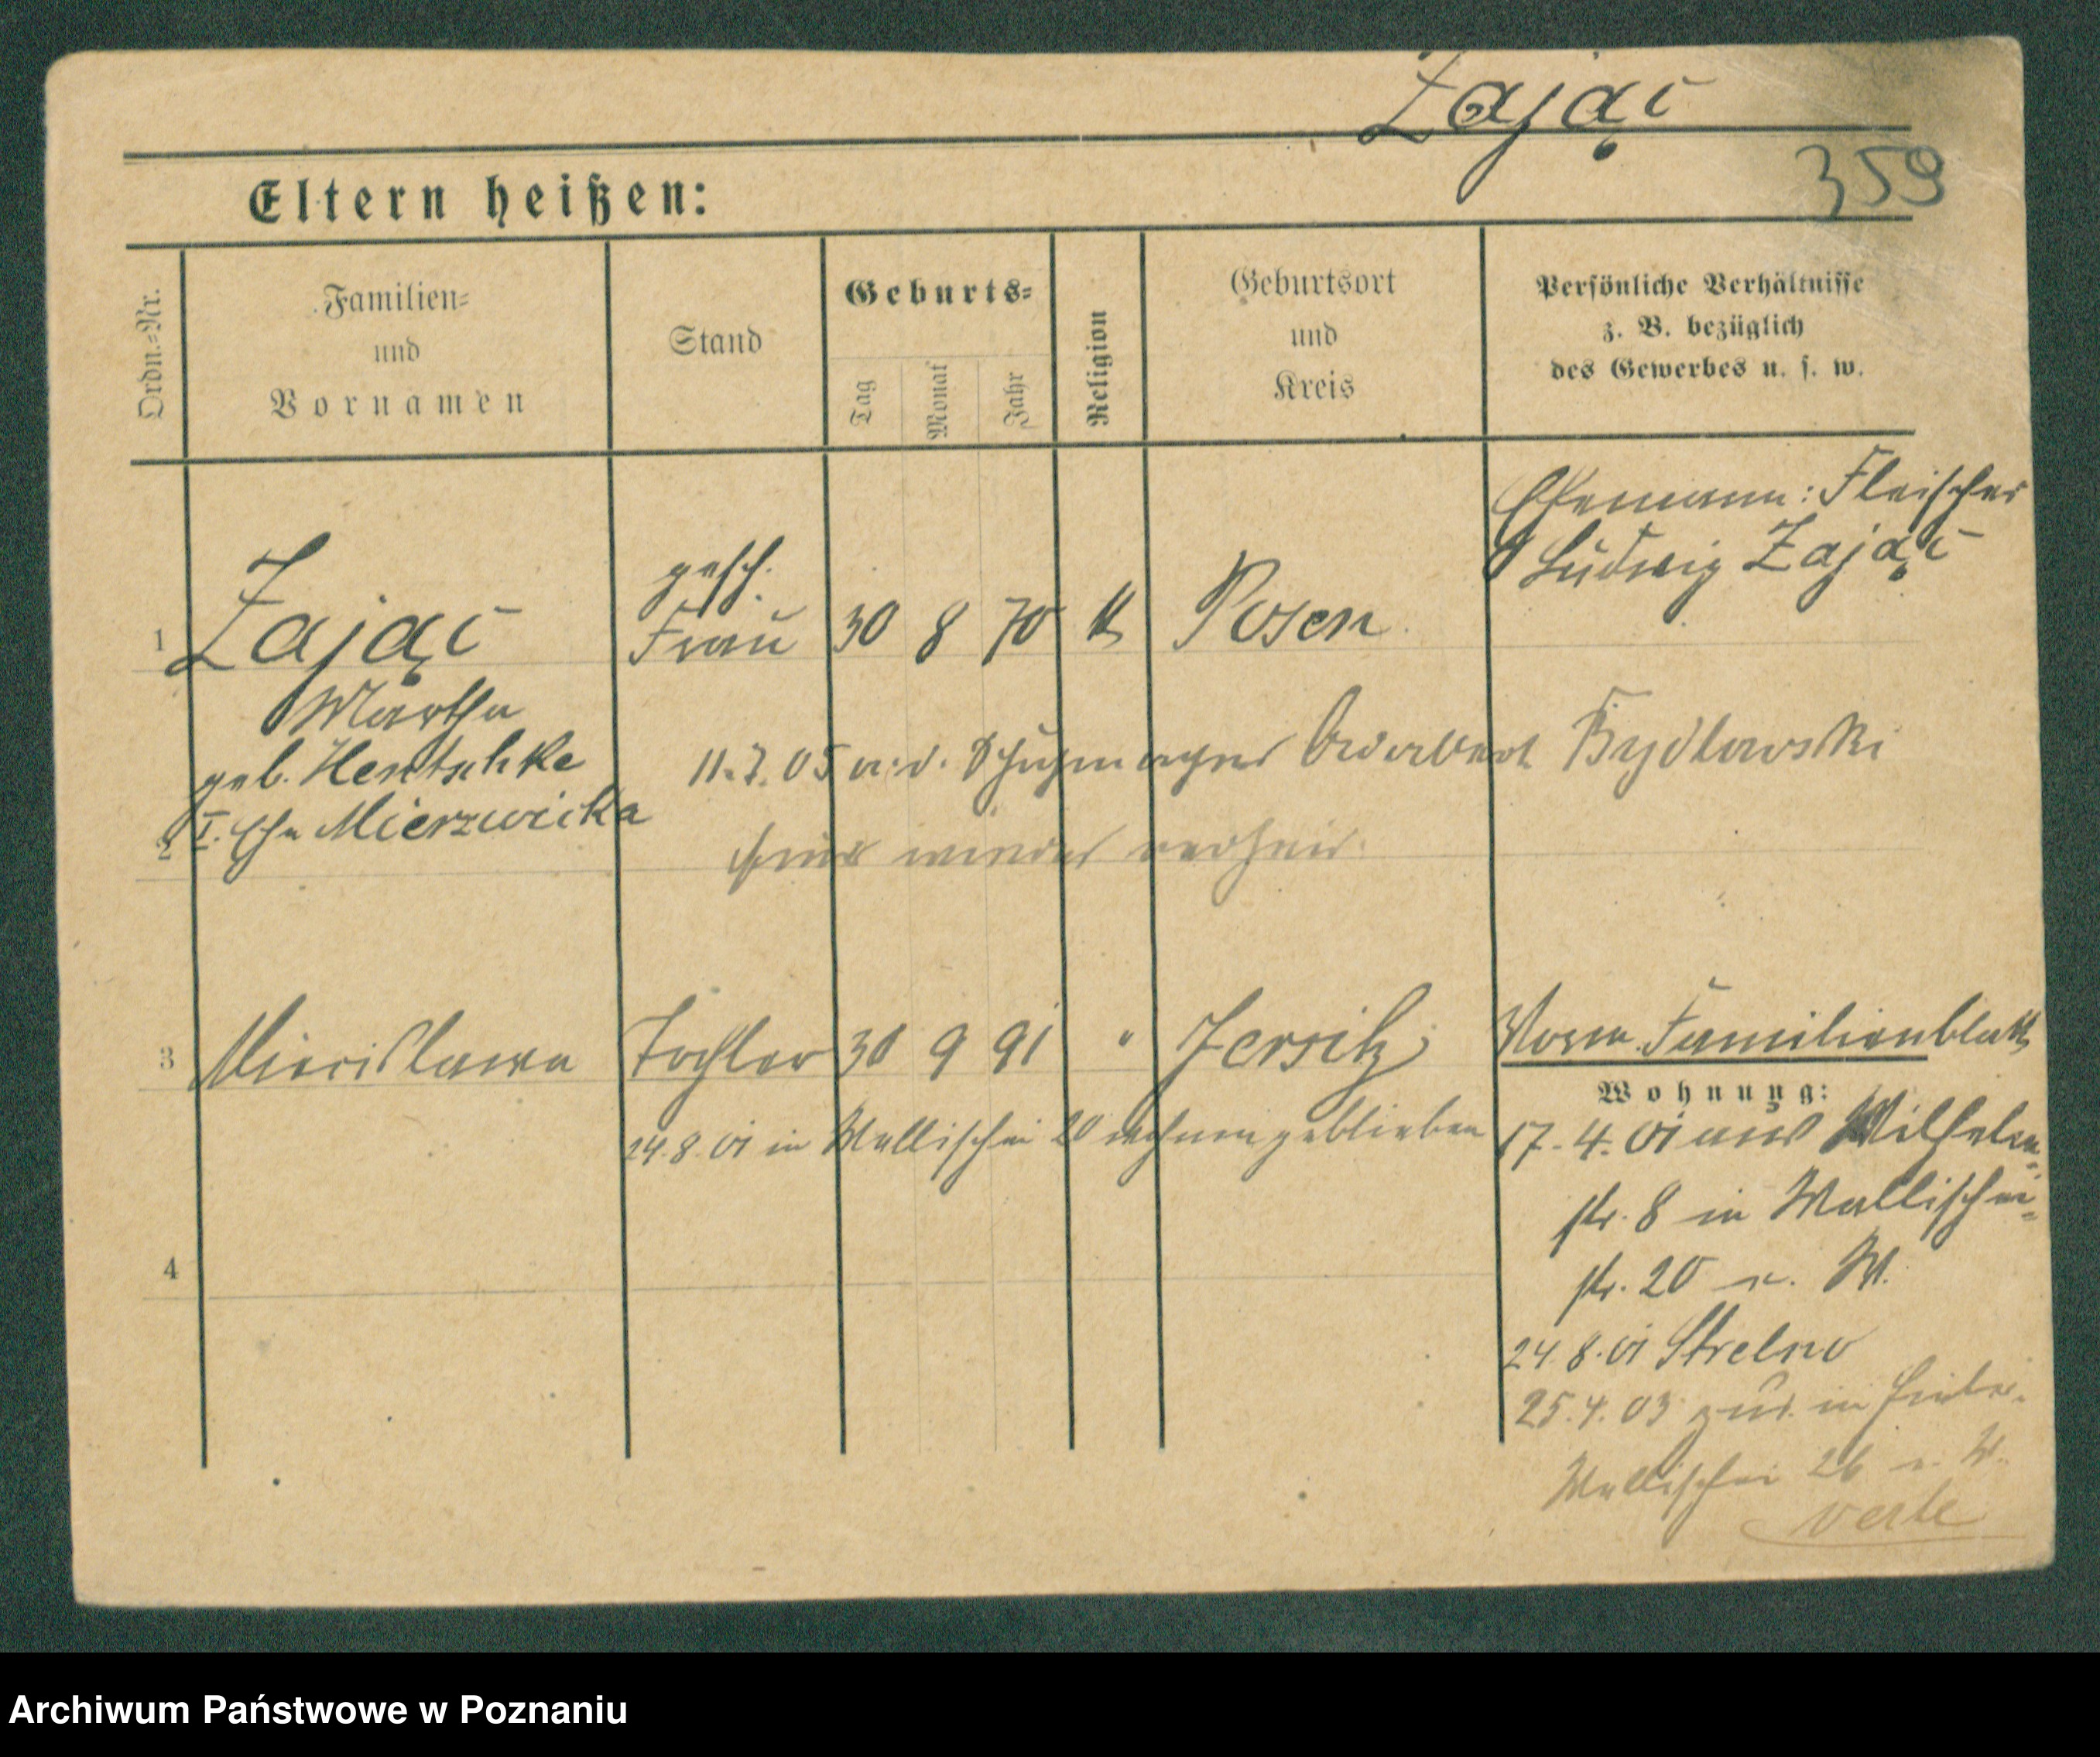 Zając
359
Eltern heißen:
Ordn.-Nr.
Familien-
und
Vornamen
Stand
Geburts-
Tag
Monat
Jahr
Religion
Geburtsort
und
Kreis
Persönliche Verhältnisse
z. B. bezüglich
des Gewerbes u. s. w.
Ehemann: Fleischer
Ludwig Zając
gesch.
1 Zając Frau 30 8 70 k Posen
Martha
geb. Hentschke
11.7.05 m. d. Schuhmacher Adalbert Bydlowski
2 I. Ehe Mierzwicka
hier wieder verheir.
3 Miecislawa Tochter 30 9 91 " Jersitz
Norm. Familienblatt
Wohnung:
24.8.01 in Wallischei 20 wohnen geblieben
17.4.01 aus Wilhelm-
str. 8 in Wallischei-
str. 20 u. W.
4
24.8.01 Strelno
25.4.03 zur. in
Wallischei 26 u. W.
verte
Archiwum Państwowe w Poznaniu